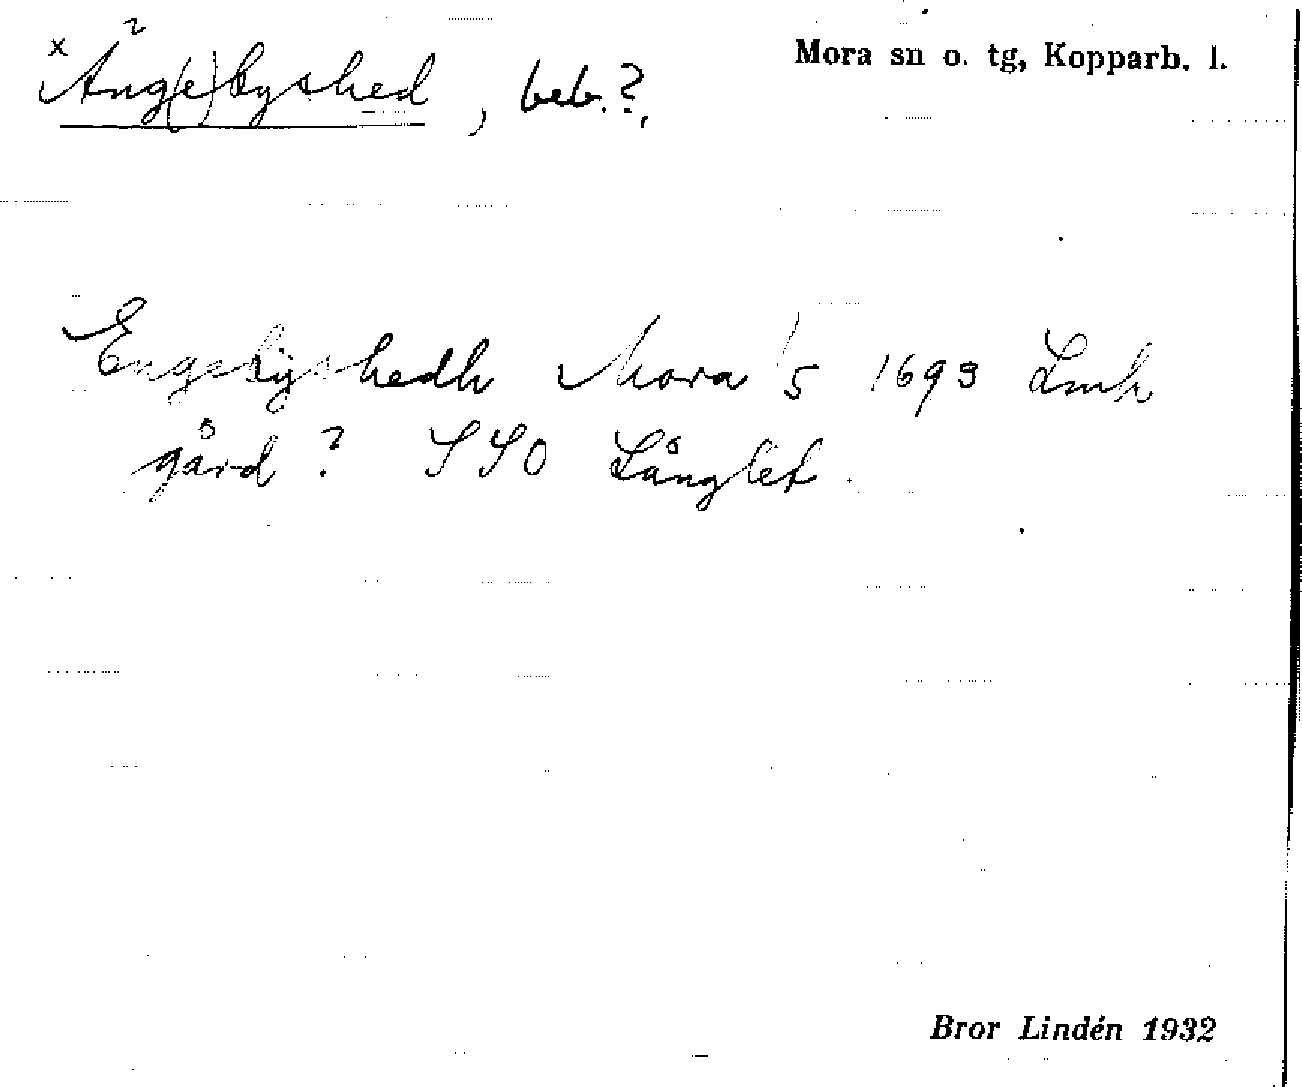 x Äng(e)byshed, beb.?,
Mora sn o. tg, Kopparb. l.
Engebyshedh Mora 15 1693 Lmh
gård? SSO Långlet.
Bror Lindén 1932